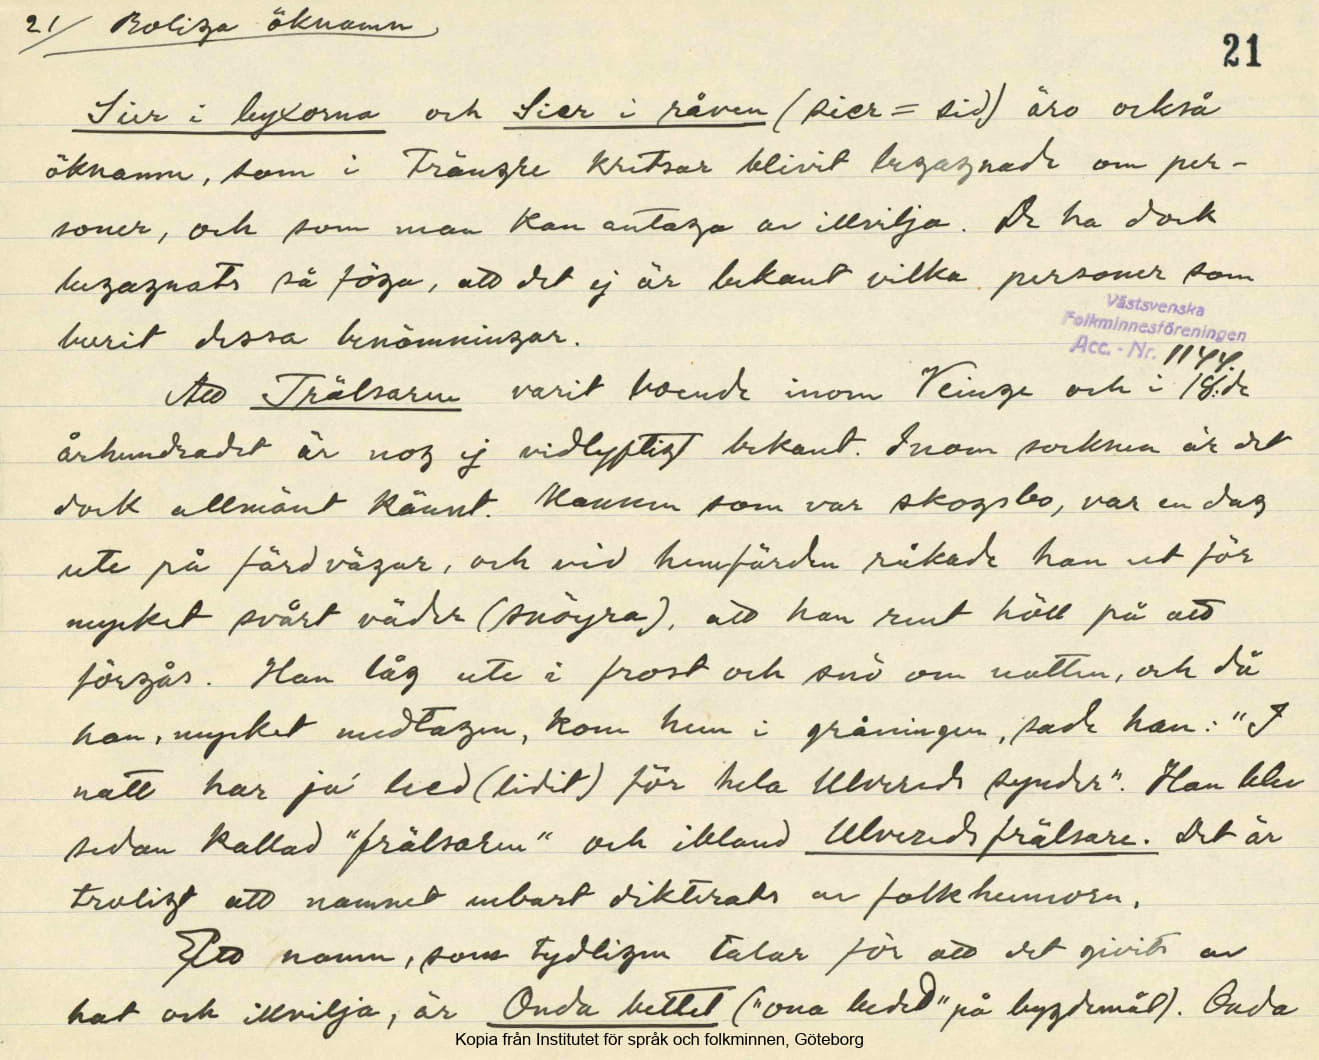 21/ Roliga öknamn
21
Sier i byxorna och Sier i råven (sier = sid) äro också
öknamn, som i trängre kretsar blivit begagnade om per-
soner, och som man kan antaga av illvilja. De ha dock
begagnats så föga, att det ej är bekant vilka personer som
burit dessa benämningar.
Västsvenska
Folkminnesföreningen
Acc. - Nr. 1144.
Att Frälsaren varit boende inom Veinge och i 18:de
århundradet är nog ej vidlyftigt bekant. Inom socknen är det
dock allmänt känt. Mannen som var skogsbo, var en dag
ute på färdvägar, och vid hemfärden råkade han ut för
mycket svårt väder (snöyra), att han rent höll på att
förgås. Han låg ute i frost och snö om natten, och då
han, mycket medtagen, kom hem i gråningen, sade han: "I
natt har ja' leed (lidit) för hela Ulvereds synder". Han blev
sedan kallad "frälsaren" och ibland Ulvereds frälsare. Det är
troligt att namnet enbart dikterats av folkhumorn.
Ett namn, som tydligen talar för att det givits av
hat och illvilja, är Onda bettet ("ona bedet" på bygdemål). Onda
Kopia från Institutet för språk och folkminnen, Göteborg